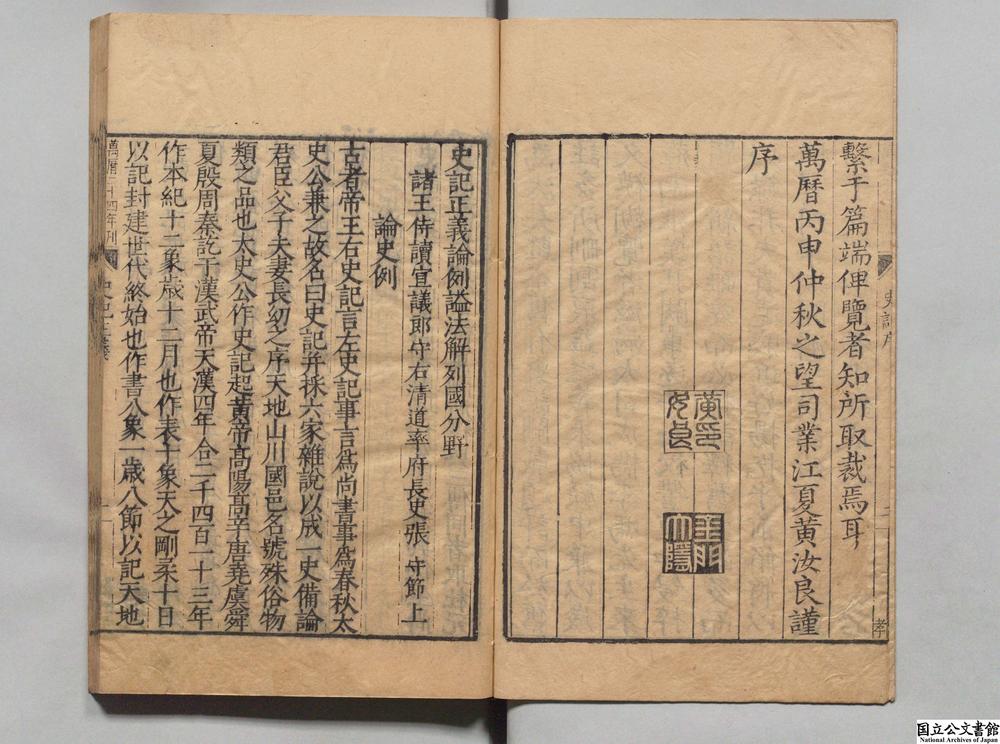 繫于篇端俾覽者知所取裁焉耳
萬曆丙申仲秋之望司業江夏黄汝良謹
序
黄汝良印
金門大隱
史記序
二
史記正義論例謚法解列國分野
諸王侍讀宣議郎守右清道率府長史張 守節上
論史例
古者帝王右史記言左史記事言爲尚書事爲春秋太
史公兼之故名曰史記并採六家雜說以成一史備論
君臣父子夫妻長幼之序天地山川國邑名號殊俗物
類之品也太史公作史記起黄帝高陽高辛唐堯虞舜
夏殷周秦訖于漢武帝天漢四年合二千四百一十三年
作本紀十二象歲十二月也作表十象天之剛柔十日
以記封建世代終始也作書八象一歲八節以記天地
萬曆二十四年刊
史記正義
一
国立公文書館
National Archives of Japan